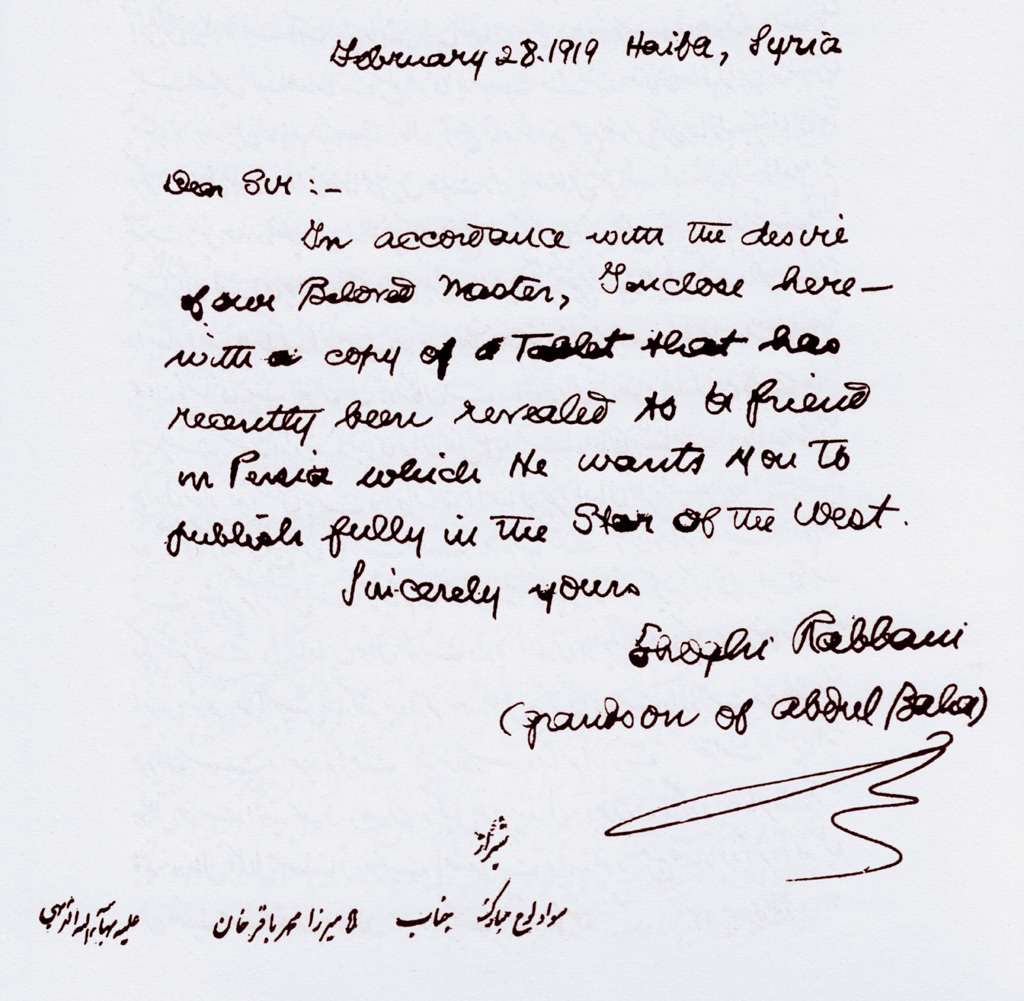 February 28. 1919 Haifa, Syria
Dear Sir :-
In accordance with the desire
of our Beloved Master, I enclose here-
with a copy of a Tablet that has
recently been revealed to a friend
in Persia which He wants you to
publish fully in the Star of the West.
Sincerely yours
Shoghi Rabbani
(grandson of Abdul Baha)
شیراز
سواد لوح مبارک جناب میرزا محمد باقر خان علیه بهآء الله الابهی